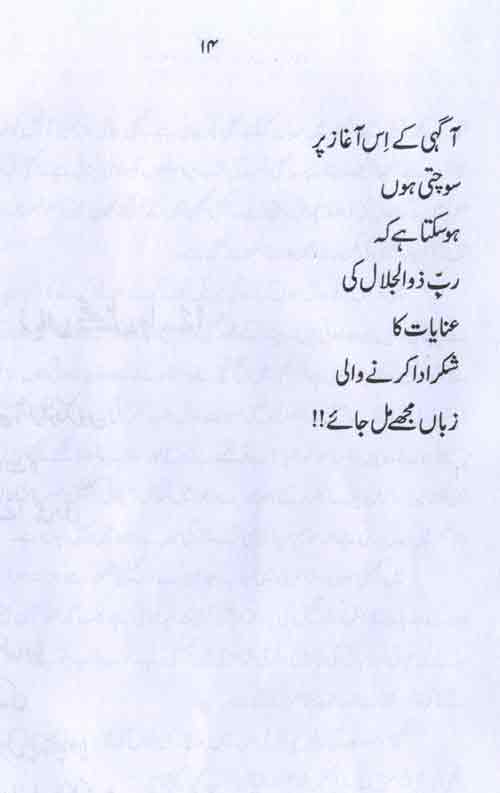 ۱۴
آگہی کے اِس آغاز پر
سوچتی ہوں
ہوسکتا ہے کہ
ربِّ ذوالجلال کی
عنایات کا
شکر ادا کرنے والی
زباں مجھے مل جائے!!